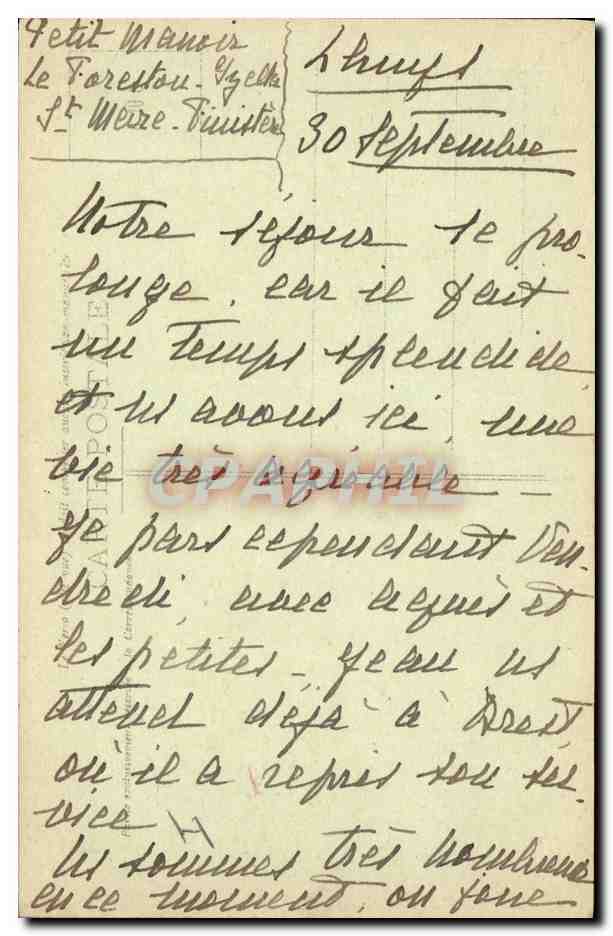 Petit Manoir
Le Forestou
St Meire - Finistère
30 Septembre
Notre séjour se pro-
longe, car il fait
un temps splendide
et ns avons ici, une
vie très
Je pars cependant Ven-
dredi, avec Agnès et
les petites - Jean ns
attend déjà à Brest
où il a repris son ser-
vice
Ns sommes très nombreux
en ce moment, on joue
CARTE POSTALE
CPAPHIL